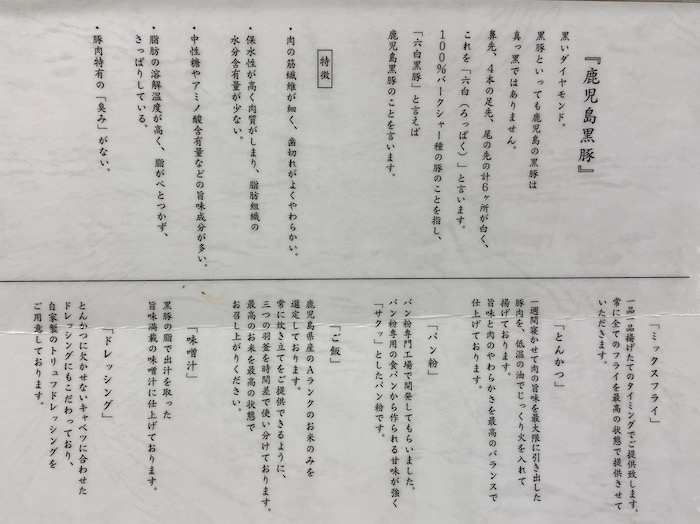 『鹿児島黒豚』
黒いダイヤモンド。
黒豚といっても鹿児島の黒豚は
真っ黒ではありません。
鼻先、4本の足先、尾の先の計6ヶ所が白く、
これを「六白（ろっぱく）」と言います。
100％バークシャー種の豚のことを指し、
「六白黒豚」と言えば
鹿児島黒豚のことを言います。
特徴
・肉の筋繊維が細く、歯切れがよくやわらかい。
・保水性が高く肉質がしまり、脂肪組織の
水分含有量が少ない。
・中性糖やアミノ酸含有量などの旨味成分が多い。
・脂肪の溶解温度が高く、脂がべとつかず、
さっぱりしている。
・豚肉特有の「臭み」がない。
「ミックスフライ」
一品一品揚げたてのタイミングでご提供致します。
常に全てのフライを最高の状態で提供させて
いただきます。
「とんかつ」
一週間寝かせて肉の旨味を最大限に引き出した
豚肉を、低温の油でじっくり火を入れて
揚げております。
旨味と肉のやわらかさを最高のバランスで
仕上げております。
「パン粉」
パン粉専門工場で開発してもらいました。
パン粉専用の食パンから作られる甘味が強く
「サクッ」としたパン粉です。
「ご飯」
鹿児島県産のAランクのお米のみを
選定しております。
常に炊き立てをご提供できるように、
三つの羽釜を時間差で使い分けております。
最高のお米を最高の状態で
お召し上がりください。
「味噌汁」
黒豚の脂で出汁を取った
旨味満載の味噌汁に仕上げております。
「ドレッシング」
とんかつに欠かせないキャベツに合わせた
ドレッシングにもこだわっており、
自家製のトリュフドレッシングを
ご用意しております。